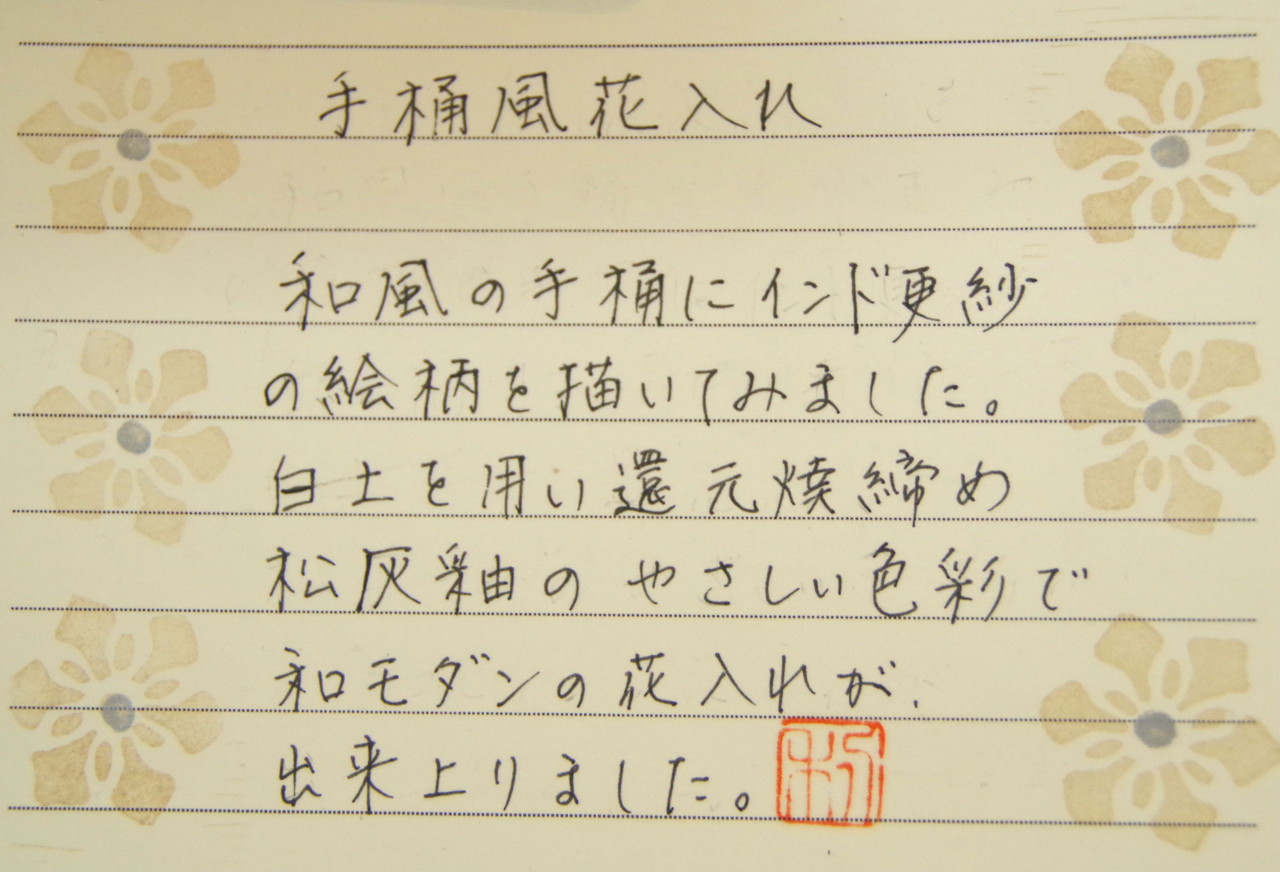 手桶風花入れ
和風の手桶にインド更紗
の絵柄を描いてみました。
白土を用い還元焼締め
松灰釉のやさしい色彩で
和モダンの花入れが、
出来上りました。